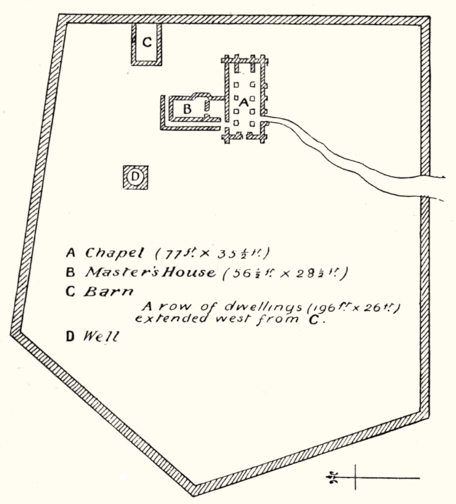 C
B
A
D
A Chapel (77 ft. x 35½ ft.)
B Master's House (56½ ft. x 28½ ft.)
C Barn
A row of dwellings (196 ft. x 26 ft.)
extended west from C.
D Well